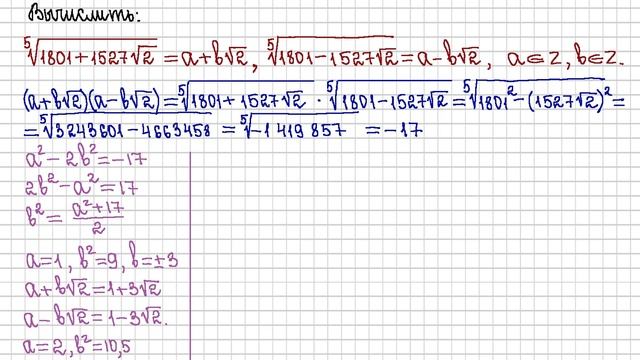 Вычислить:
⁵√(1801+1527√2) = a+b√2, ⁵√(1801-1527√2) = a-b√2, a∈Z, b∈Z.
(a+b√2)(a-b√2) = ⁵√(1801+1527√2) · ⁵√(1801-1527√2) = ⁵√(1801²-(1527√2)²) =
= ⁵√(3243601-4663458) = ⁵√(-1 419 857) = -17
a²-2b²=-17
2b²-a²=17
b² = (a²+17)/2
a=1, b²=9, b=±3
a+b√2=1+3√2
a-b√2=1-3√2.
a=2, b²=10,5